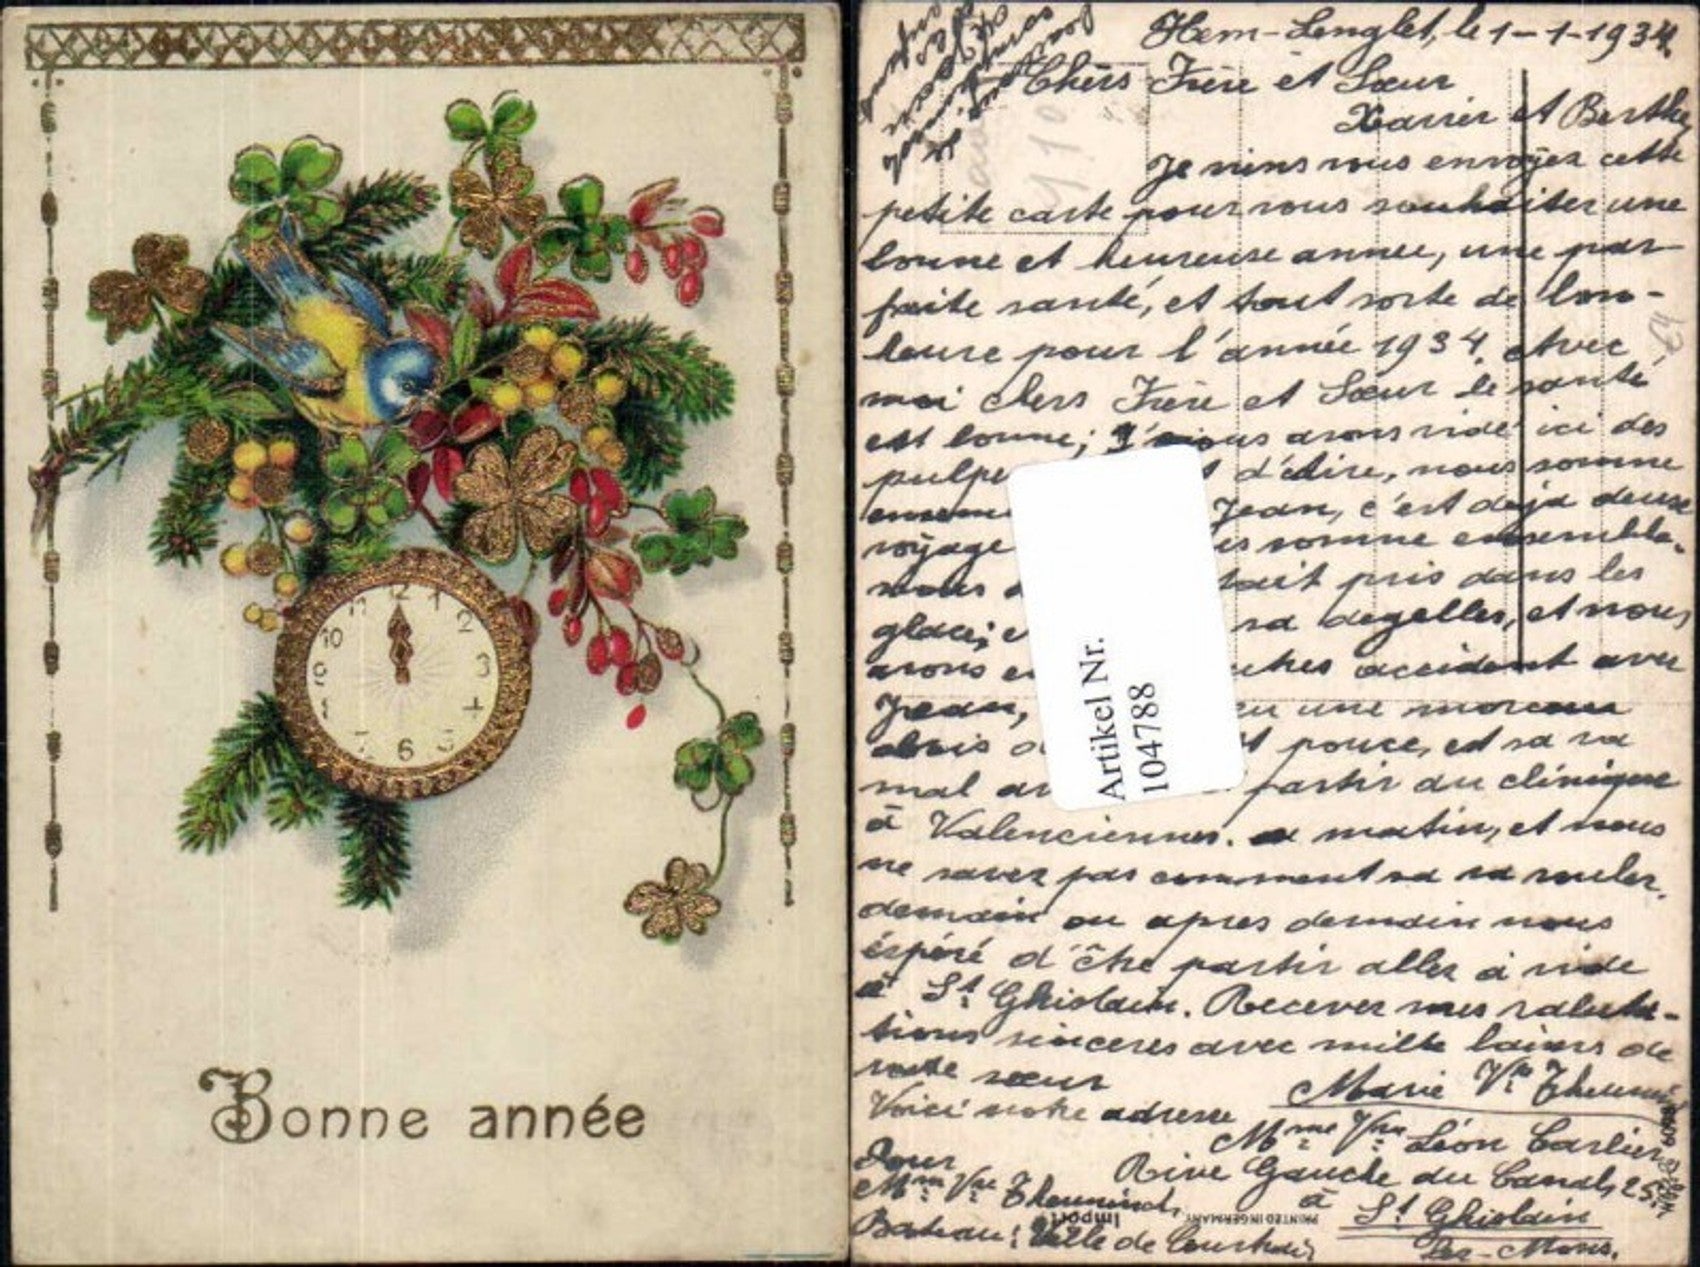 12
1
2
3
6
9
10
11
Bonne année
Hem-Lenglet, le 1-1-1934.
Chèrs Frère et Sœur
Xavier et Berthe
Je viens vous envoyez cette
petite carte pour vous souhaiter une
bonne et heureuse annee, une par
faite santé, et tout sorte de bon-
heure pour l'année 1934. Avec
moi chers Frère et Sœur le santé
est bonne; nous avons vidé ici des
pulpe d'Edire, nous somme
Jean, c'est deja deuxe
voyage somme ensemble.
nous pris dans les
glace; sa degelles, et nous
avons accident avec
Jean, une morceau
pouce, et sa va
mal partir au clinique
à Valenciennes. matin, et nous
ne savez pas comment sa va rouler.
demain ou apres demain nous
éspéré d'être partir allez à vide
à St Ghislain. Recever mes saluta-
tions sinceres avec mille baiers de
votre sœur
Marie Vve
Voici notre adresse
Mme Vve Léon Carlier
Rive Gauche du Canal, 25
à St Ghislain
Lez-Mons.
Pour
Mme Vve
Bateau: Ville de Courtrai
Artikel Nr.
104788
Import
PRINTED IN GERMANY